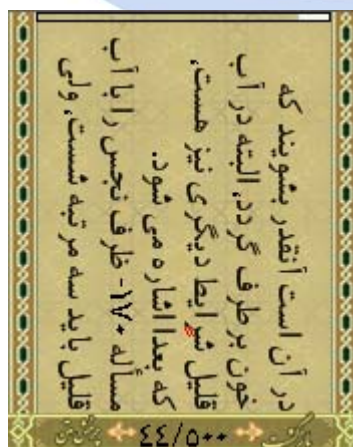 در آن است آنقدر بشویند که
خون برطرف گردد, البته در آب
قلیل شرایط دیگری نیز هست,
که بعدا اشاره می شود.
مسأله ۱۷۰- ظرف نجس را با آب
قلیل باید سه مرتبه شست, ولی
بازگشت
٤٤/٥٠٠